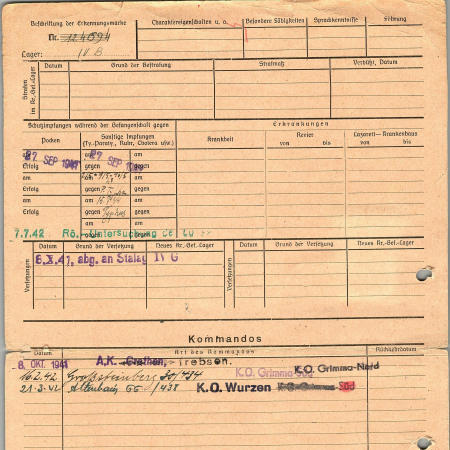 Beschriftung der Erkennungsmarke
Nr. 124594
Lager: IV B
Charaktereigenschaften u. a.
Besondere Fähigkeiten
Sprachkenntnisse
Führung
Strafen im Kr.-Gef.-Lager
Datum
Grund der Bestrafung
Strafmaß
Verbüßt, Datum
Schutzimpfungen während der Gefangenschaft gegen
Erkrankungen
Pocken
Sonstige Impfungen
(Ty.-Paraty., Ruhr, Cholera usw.)
Krankheit
Revier
von bis
Lazarett — Krankenhaus
von bis
27 SEP 1941
27 SEP 1941
Erfolg
gegen
am
am
Erfolg
gegen
am
am
Erfolg
gegen Typhus
am
am
7.7.42 Rö.-Untersuchung
Versetzungen
Datum
Grund der Versetzung
Neues Kr.-Gef.-Lager
Versetzungen
Datum
Grund der Versetzung
Neues Kr.-Gef.-Lager
6.X.41, abg. an Stalag IV G
Kommandos
Datum
Art des Kommandos
Rückkehrdatum
8. OKT. 1941 A.K. Grethen, Trebsen.
K.O. Grimma-Süd
K.O. Grimma-Nord
16.2.42 Großsteinberg 30/434
21.3.42 Altenbach GG /438
K.O. Wurzen
K.O. Grimma Süd